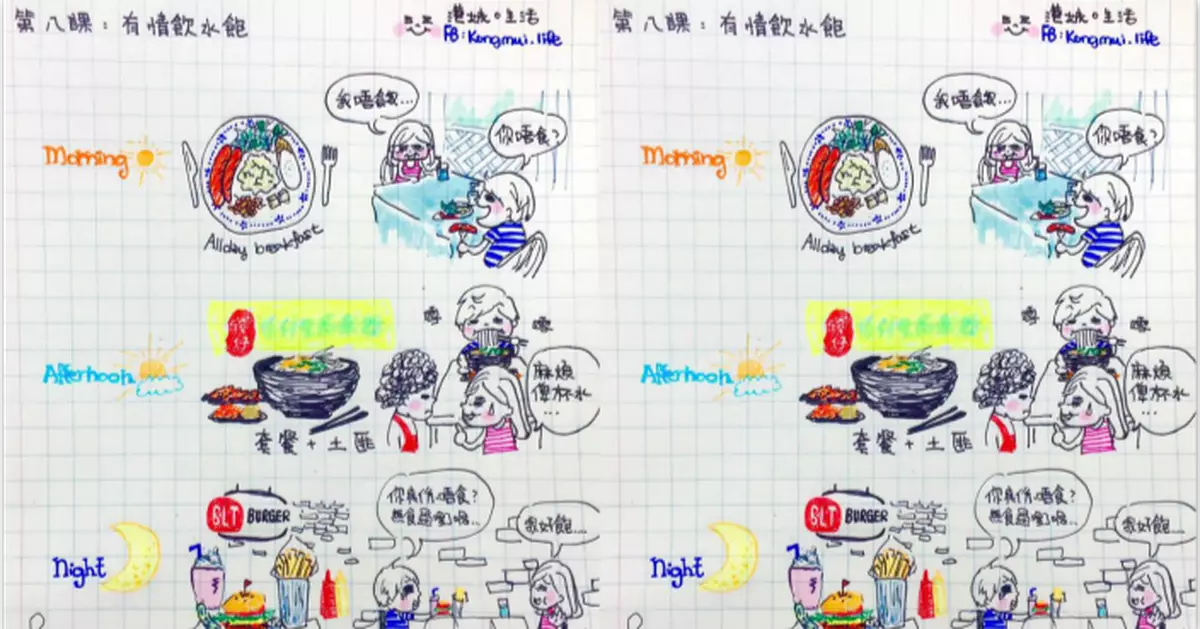 第八課：有情飲水飽
港妹の生活
FB:Kongmui.life
Morning
Allday breakfast
我唔餓...
你唔食?
Afternoon
套餐 + 土匪
麻煩
俾杯水
...
Night
BLT BURGER
你真係唔食?
我好飽...
第八課：有情飲水飽
港妹の生活
FB:Kongmui.life
Morning
Allday breakfast
我唔餓...
你唔食?
Afternoon
套餐 + 土匪
麻煩
俾杯水
...
Night
BLT BURGER
你真係唔食?
我好飽...